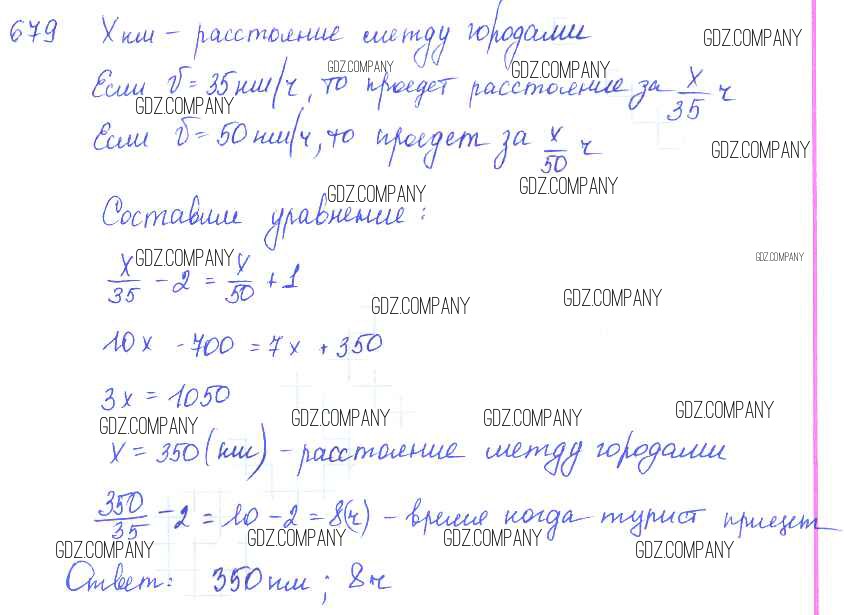 679 X км – расстояние между городами
GDZ.COMPANY
Если v = 35 км/ч, то проедет расстояние за x/35 ч
GDZ.COMPANY GDZ.COMPANY
GDZ.COMPANY
Если v = 50 км/ч, то проедет за x/50 ч
GDZ.COMPANY
GDZ.COMPANY GDZ.COMPANY
Составим уравнение:
GDZ.COMPANY GDZ.COMPANY
x/35 - 2 = x/50 + 1
GDZ.COMPANY GDZ.COMPANY
10x - 700 = 7x + 350
3x = 1050
GDZ.COMPANY GDZ.COMPANY GDZ.COMPANY GDZ.COMPANY
x = 350 (км) – расстояние между городами
350/35 - 2 = 10 - 2 = 8(ч) – время когда турист приедет
GDZ.COMPANY GDZ.COMPANY GDZ.COMPANY GDZ.COMPANY
Ответ: 350 км; 8 ч